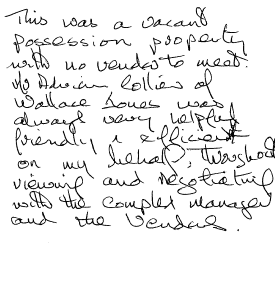 This was a vacant
possession property
with no vendor to meet.
Mr Adrian Collier of
Wallace Jones was
always very helpful
friendly & efficient
on my behalf, throughout
viewing and negotiating
with the complex manager
and the Vendors.